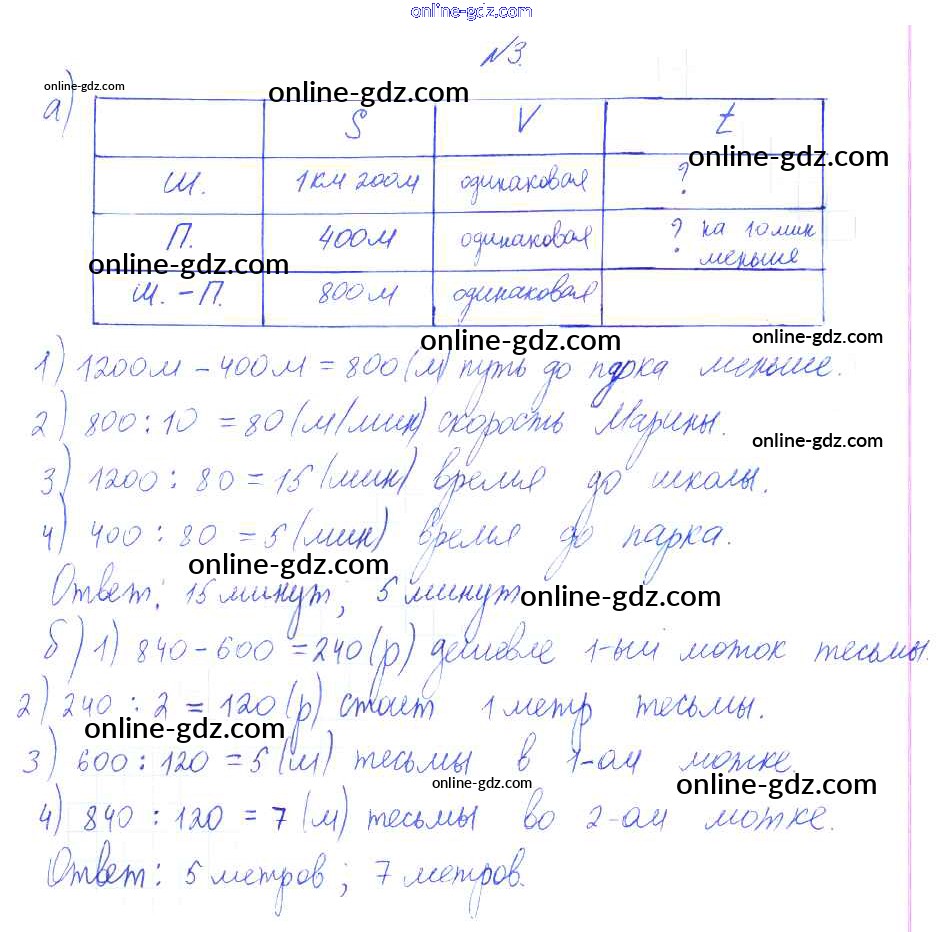 online-gdz.com
№3.
online-gdz.com
а)
online-gdz.com
S V t
online-gdz.com
Ш. 1км 200м одинаковая ?
П. 400м одинаковая ? на 10 мин меньше
online-gdz.com
Ш. – П. 800м одинаковая
online-gdz.com
online-gdz.com
1) 1200м – 400м = 800 (м) путь до парка меньше.
2) 800 : 10 = 80 (м/мин) скорость Марины.
online-gdz.com
3) 1200 : 80 = 15 (мин) время до школы.
4) 400 : 80 = 5 (мин) время до парка.
online-gdz.com
Ответ: 15 минут; 5 минут
online-gdz.com
б) 1) 840 – 600 = 240 (р) дешевле 1-ый моток тесьмы.
2) 240 : 2 = 120 (р) стоит 1 метр тесьмы.
online-gdz.com
3) 600 : 120 = 5 (м) тесьмы в 1-ом мотке.
online-gdz.com
online-gdz.com
4) 840 : 120 = 7 (м) тесьмы во 2-ом мотке.
Ответ: 5 метров; 7 метров.